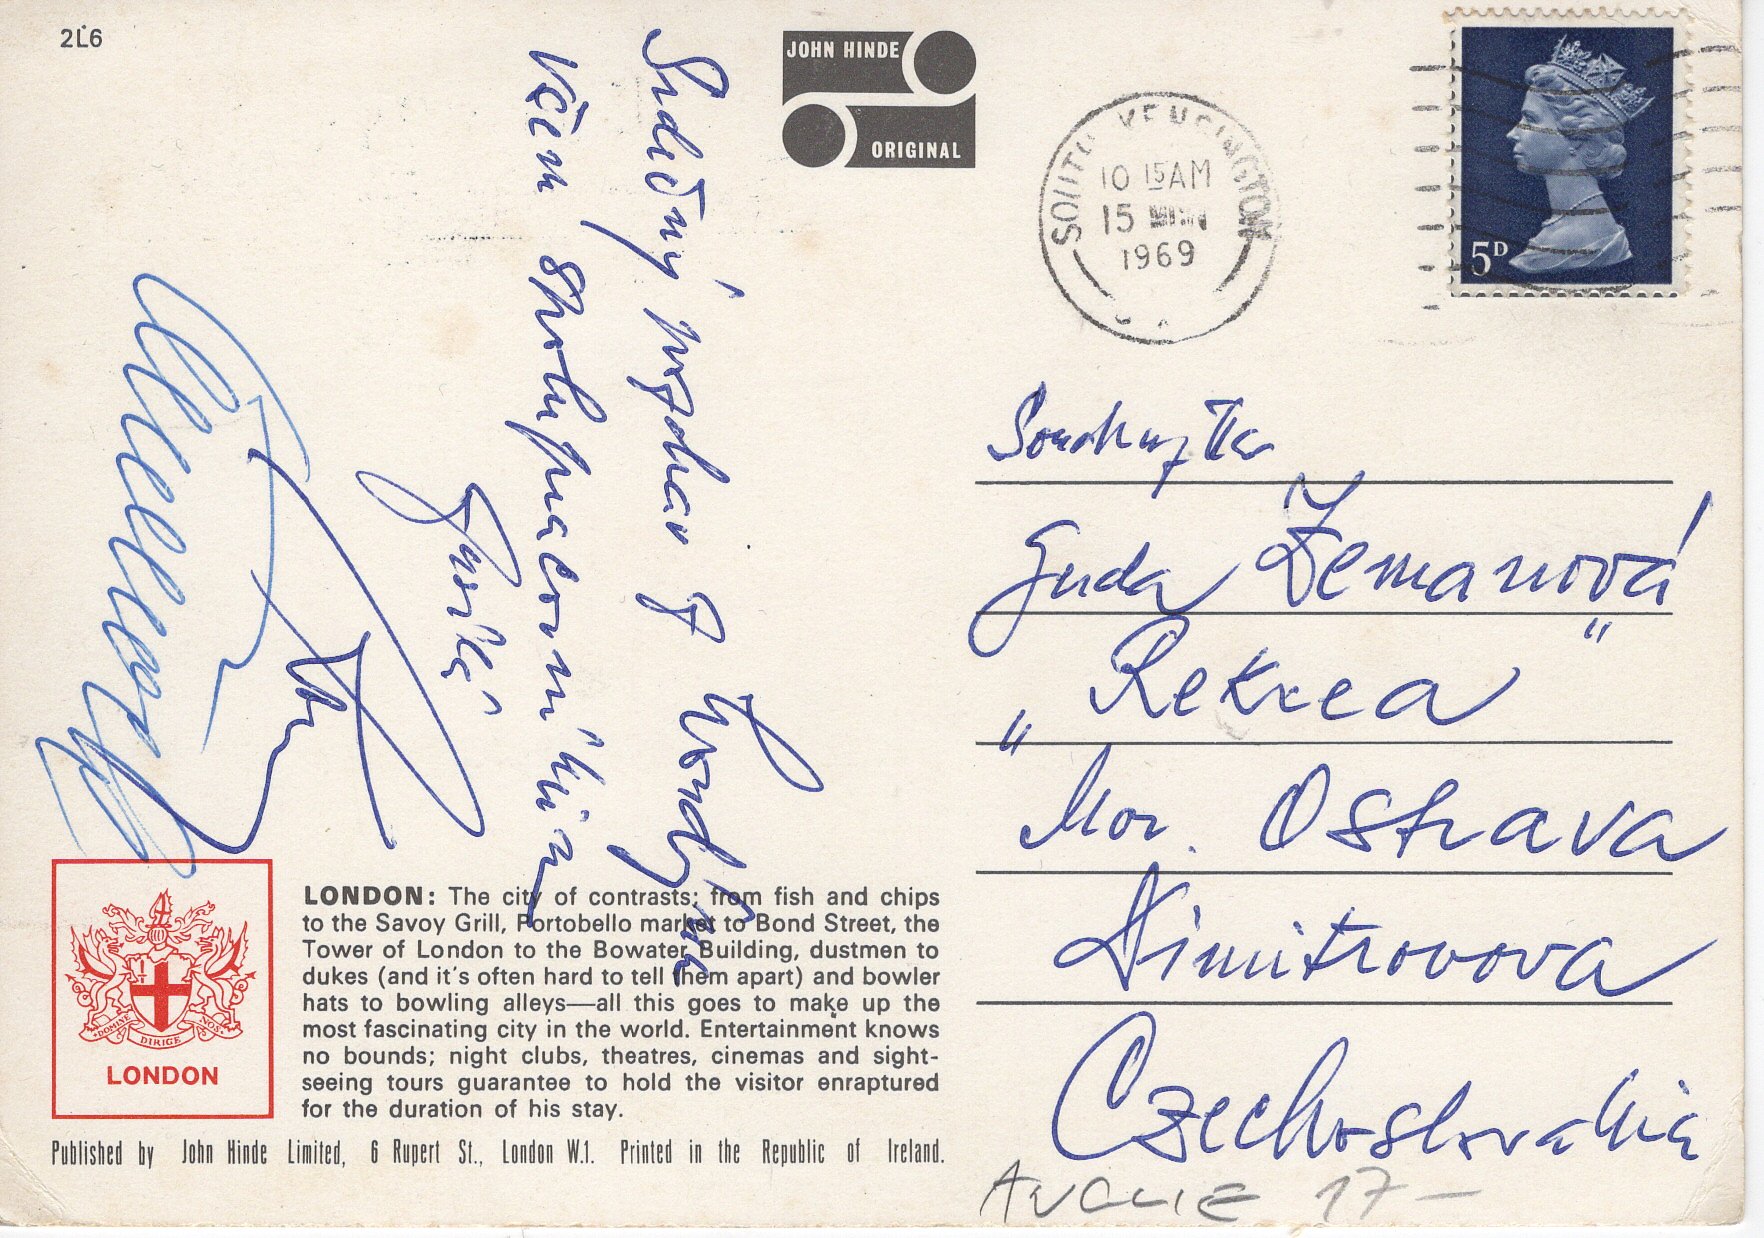 2L6
JOHN HINDE
ORIGINAL
SOUTH KENSINGTON
10 15AM
15
1969
5D
Srdečný pozdrav z Londýna
Všem spolupracovníkům
Soudružka
Guda Zemanová
"Rekrea"
Mor. Ostrava
Dimitrovova
Czechoslovakia
LONDON: The city of contrasts; from fish and chips
to the Savoy Grill, Portobello market to Bond Street, the
Tower of London to the Bowater Building, dustmen to
dukes (and it's often hard to tell them apart) and bowler
hats to bowling alleys—all this goes to make up the
most fascinating city in the world. Entertainment knows
no bounds; night clubs, theatres, cinemas and sight-
seeing tours guarantee to hold the visitor enraptured
for the duration of his stay.
DOMINE DIRIGE NOS
LONDON
Published by John Hinde Limited, 6 Rupert St., London W.1. Printed in the Republic of Ireland.
ANGLIE 17-